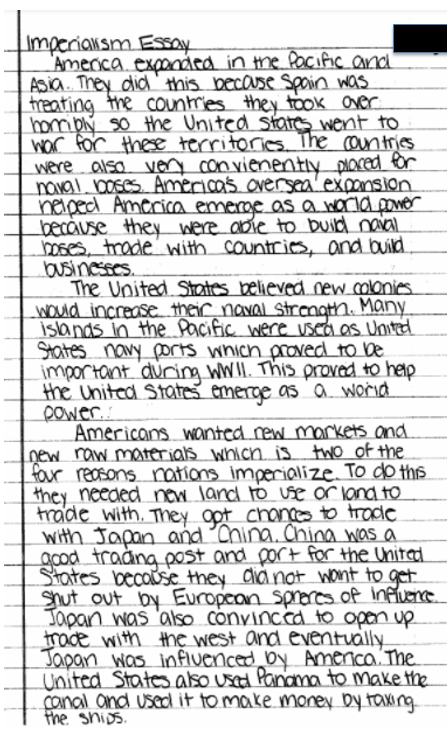 Imperialism Essay
America expanded in the Pacific and
Asia. They did this because Spain was
treating the countries they took over
horribly so the United States went to
war for these territories. The countries
were also very convienently placed for
naval bases. America's oversea expansion
helped America emerge as a world power
because they were able to build naval
bases, trade with countries, and build
businesses.
The United States believed new colonies
would increase their naval strength. Many
islands in the Pacific were used as United
States navy ports which proved to be
important during WWII. This proved to help
the United States emerge as a world
power.
Americans wanted new markets and
new raw materials which is two of the
four reasons nations imperialize. To do this
they needed new land to use or land to
trade with. They got chances to trade
with Japan and China. China was a
good trading post and port for the United
States because they did not want to get
shut out by European spheres of influence.
Japan was also convinced to open up
trade with the west and eventually
Japan was influenced by America. The
United States also used Panama to make the
canal and used it to make money by taxing
the ships.